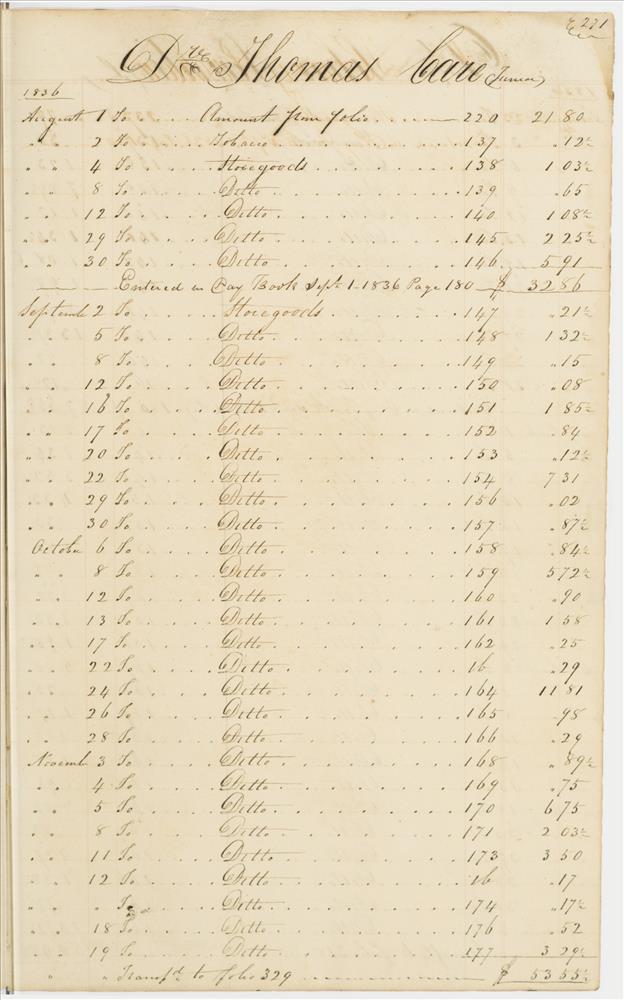 271
Dr. Mr. Thomas Care Junior
1836
August 1 To Amount from folio 220 21 80
" " 2 To Tobacco 137 " 12½
" " 4 To Storegoods 138 1 03½
" " 8 To Ditto 139 " 65
" " 12 To Ditto 140 1 08½
" " 29 To Ditto 145 2 25½
" " 30 To Ditto 146 5 91
Entered in Day Book Sept. 1 1836 Page 180 $ 32 86
Septemb 2 To Storegoods 147 " 21½
" " 5 To Ditto 148 1 32½
" " 8 To Ditto 149 " 15
" " 12 To Ditto 150 " 08
" " 16 To Ditto 151 1 85½
" " 17 To Ditto 152 " 84
" " 20 To Ditto 153 " 12½
" " 22 To Ditto 154 7 31
" " 29 To Ditto 156 " 02
" " 30 To Ditto 157 " 87½
October 6 To Ditto 158 " 84½
" " 8 To Ditto 159 5 72½
" " 12 To Ditto 160 " 90
" " 13 To Ditto 161 1 58
" " 17 To Ditto 162 " 25
" " 22 To Ditto ib " 29
" " 24 To Ditto 164 11 81
" " 26 To Ditto 165 " 98
" " 28 To Ditto 166 " 29
Novemb 3 To Ditto 168 " 89½
" " 4 To Ditto 169 " 75
" " 5 To Ditto 170 6 75
" " 8 To Ditto 171 2 03½
" " 11 To Ditto 173 3 50
" " 12 To Ditto ib " 17
" " " To Ditto 174 " 17½
" " 18 To Ditto 176 " 52
" " 19 To Ditto 177 3 29½
" " Transfd. to folio 329 $ 53 55½